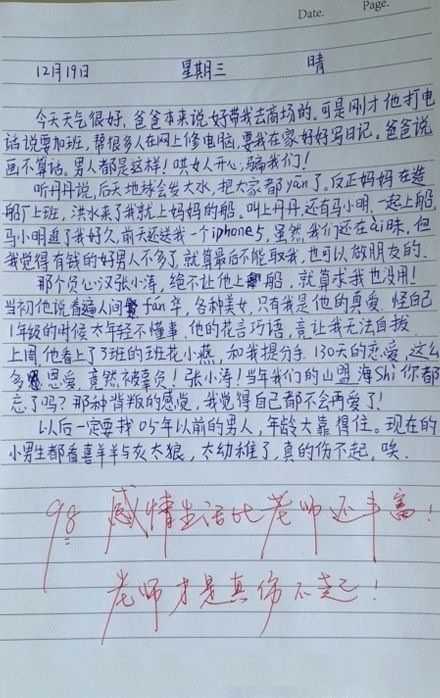 Date.    Page.
12月19日    星期三    晴
今天天气很好，爸爸本来说好带我去商场的。可是刚才他打电
话说要加班，帮很多人在网上修电脑，要我在家好好写日记。爸爸说
画不算话。男人都是这样！哄女人开心，骗我们！
听丹丹说，后天地球会发大水，把大家都yān了。反正妈妈在造
船厂上班，洪水来了我就上妈妈的船。叫上丹丹，还有马小明，一起上船，
马小明追了我好久，前天还送我一个iphone5，虽然我们还在ai昧，但
我觉得有钱的好男人不多了，就算最后不能取我，也可以做朋友的。
那个负心汉张小涛，绝不让他上船，就算求我也没用！
当初他说看遍人间fán华，各种美女，只有我是他的真爱。怪自己
1年级的时候太年轻不懂事，他的花言巧语，竟让我无法自拔
上周他看上了3班的班花小燕，和我提分手。130天的恋爱，这么
多恩爱，竟然被辜负！张小涛！当年我们的山盟海Shi你都
忘了吗？那种背叛的感觉，我觉得自己都不会再爱了！
以后一定要找05年以前的男人，年龄大靠得住。现在的
小男生都看喜羊羊与灰太狼，太幼稚了，真的伤不起，唉．
98 感情生活比老师还丰富！
老师才是真伤不起！